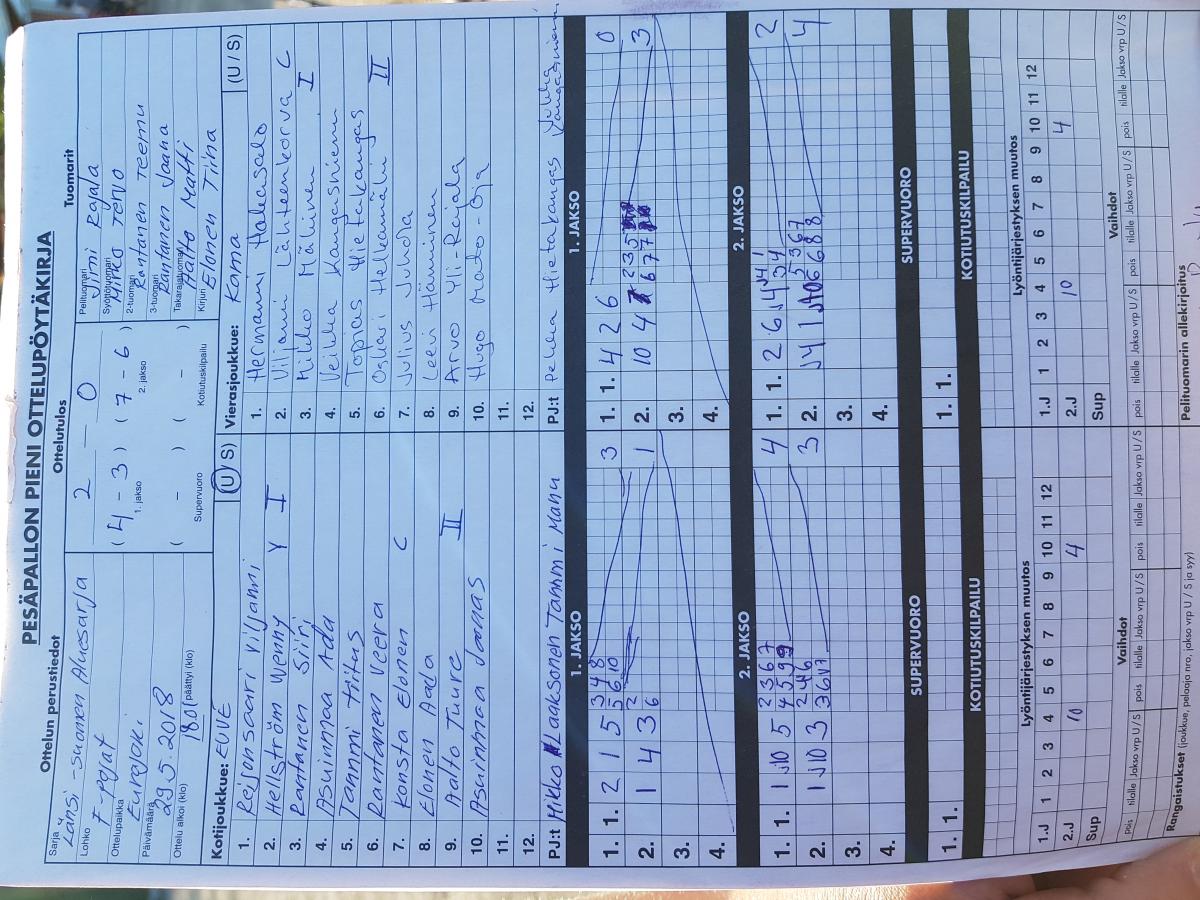 PESÄPALLON PIENI OTTELUPÖYTÄKIRJA
Ottelun perustiedot
Ottelutulos
Tuomarit
Sarja
Länsi-Suomen Aluesarja
Lohko
F-pojat
Ottelupaikka
Eurajoki
Päivämäärä
29.5.2018
Ottelu alkoi (klo)
1801
(päättyi (klo)
2 — 0
( 4 - 3 ) ( 7 - 6 )
1. jakso 2. jakso
( - ) ( - )
Supervuoro Kotiutuskilpailu
Pelituomari
Jimi Rajala
Syöttötuomari
Mirko Tervo
2-tuomari
Rantanen Teemu
3-tuomari
Rantanen Jaana
Takarajatuomari
Aalto Matti
Kirjuri
Elonen Tiina
Kotijoukkue: EUVE (U / S)
1. Reijonsaari Viljami
2. Hellström Wenny Y I
3. Rantanen Siiri
4. Asuinmaa Ada
5. Tammi Tiitus
6. Rantanen Veera
7. Konsta Elonen C
8. Elonen Aada
9. Aalto Tuure II
10. Asuinmaa Joonas
11.
12.
PJ:t Mikko Laaksonen Tammi Manu
Vierasjoukkue: Koma (U / S)
1. Hermanni Hakasalo
2. Viljami Lähteenkorva C
3. Mikko Mälinen I
4. Veikka Kangasniemi
5. Topias Hietakangas
6. Oskari Helkamäki II
7. Julius Juhola
8. Leevi Hänninen
9. Arvo Yli-Rajala
10. Hugo
11.
12.
PJ:t Pekka Hietakangas Jukka Kangasniemi
1. JAKSO
1. 1. 2 1 5 3 4 8 3
5 6 10
2. 1 4 3 2 1
6
3.
4.
1. JAKSO
1. 1. 4 2 6 0
2. 10 4 2 3 5 3
6 7 7
3.
4.
2. JAKSO
1. 1. 1 10 5 2 3 6 7 4
4 5 9 9
2. 1 10 3 2 4 6 3
3 6
3.
4.
2. JAKSO
1. 1. 2 6 4 4 1 2
3 4
2. 4 1 5 3 6 7 4
6 6 8 8
3.
4.
SUPERVUORO
1. 1.
SUPERVUORO
1. 1.
KOTIUTUSKILPAILU
KOTIUTUSKILPAILU
Lyöntijärjestyksen muutos
1.J 1 2 3 4 5 6 7 8 9 10 11 12
2.J 10 4
Sup
Lyöntijärjestyksen muutos
1.J 1 2 3 4 5 6 7 8 9 10 11 12
2.J 10 4
Sup
Vaihdot
pois tilalle Jakso vrp U / S pois tilalle Jakso vrp U / S pois tilalle Jakso vrp U / S
Vaihdot
pois tilalle Jakso vrp U / S pois tilalle Jakso vrp U / S pois tilalle Jakso vrp U / S
Rangaistukset (joukkue, pelaaja nro, jakso vrp ja syy)
Pelituomarin allekirjoitus